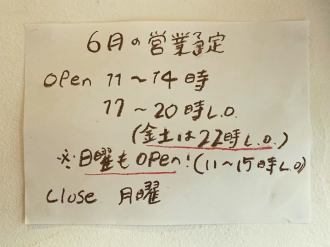 6月の営業予定
open 11～14時
17～20時L.O.
(金土は22時L.O.)
※日曜もOPEN!(11～15時L.O)
close 月曜